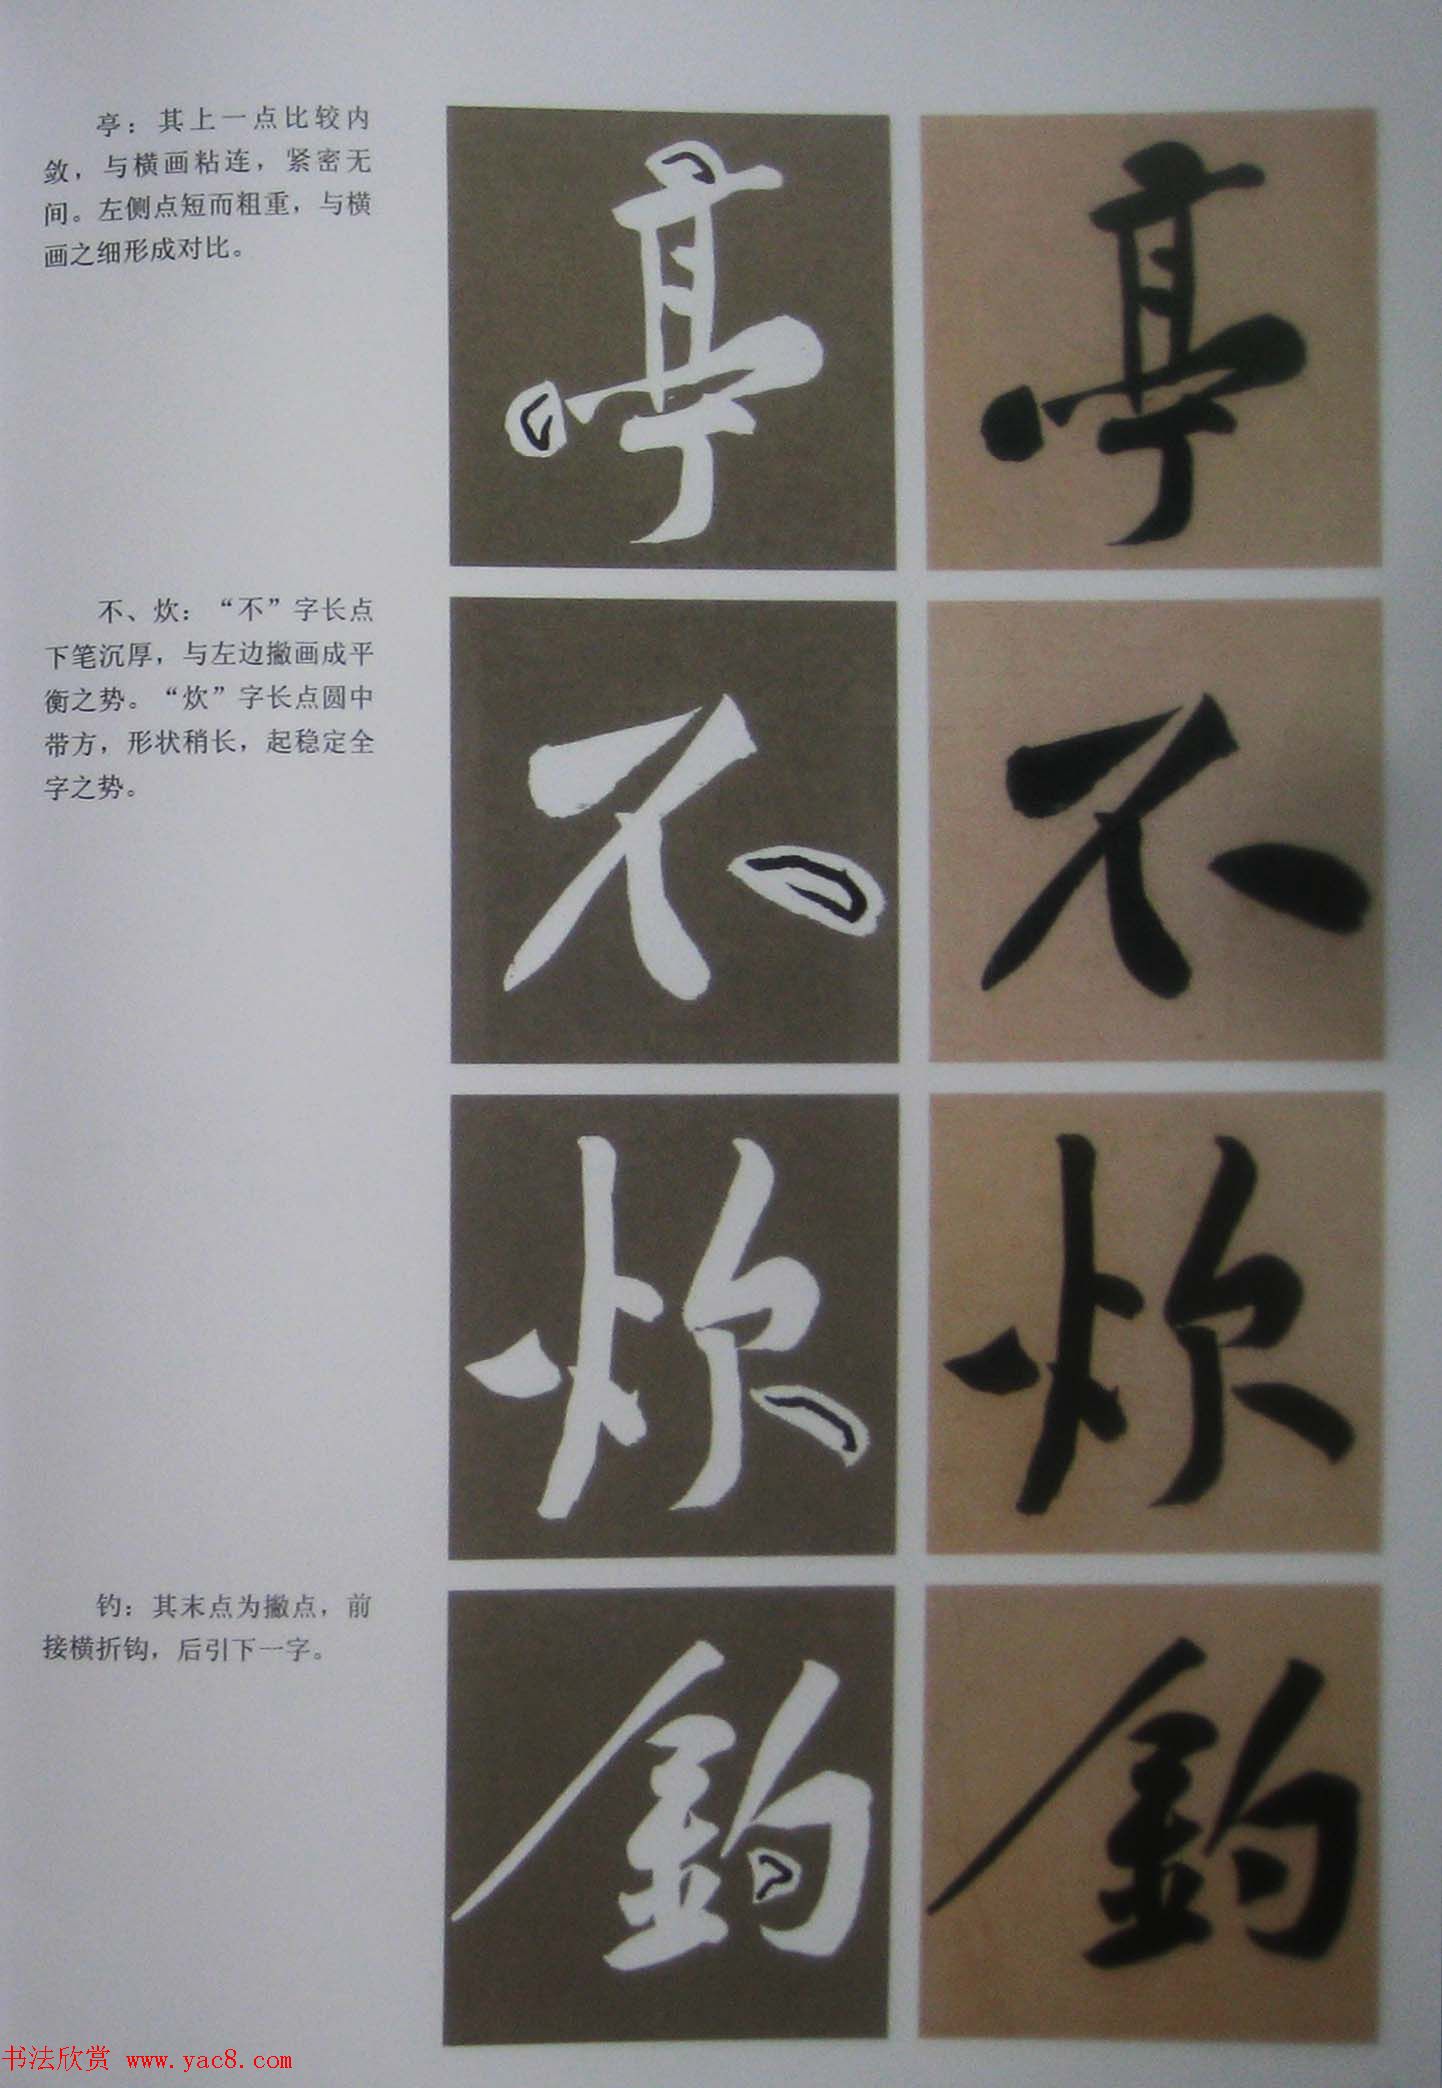 亭：其上一点比较内
敛，与横画粘连，紧密无
间。左侧点短而粗重，与横
画之细形成对比。
亭
亭
不、炊：“不”字长点
下笔沉厚，与左边撇画成平
衡之势。“炊”字长点圆中
带方，形状稍长，起稳定全
字之势。
不
不
炊
炊
钓：其末点为撇点，前
接横折钩，后引下一字。
釣
釣
书法欣赏 www.yac8.com